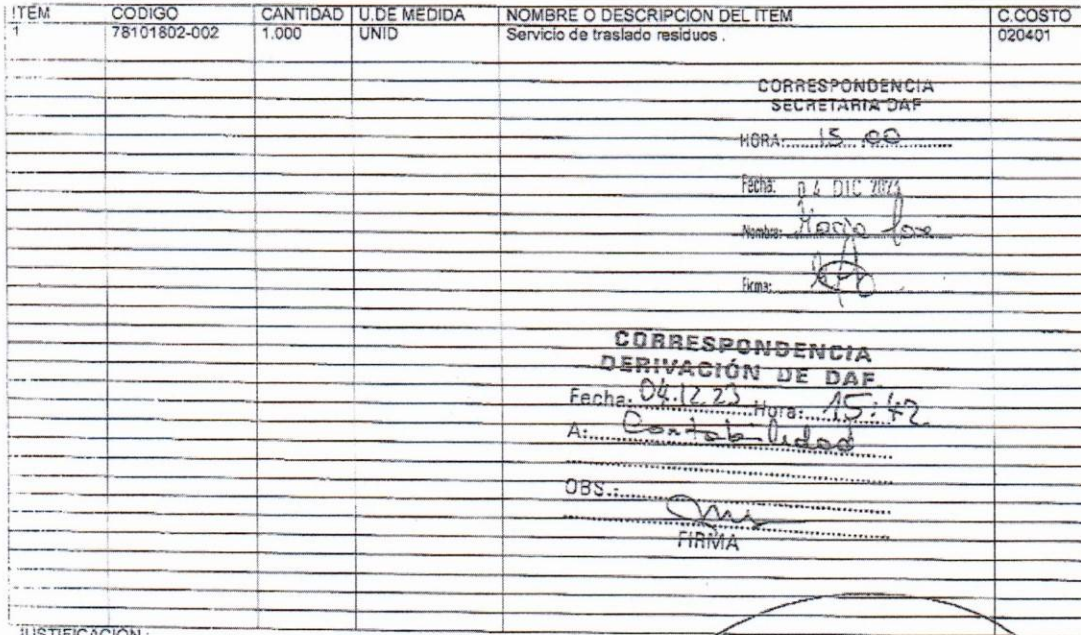 ITEM CODIGO CANTIDAD U.DE MEDIDA NOMBRE O DESCRIPCION DEL ITEM C.COSTO
1 78101802-002 1.000 UNID Servicio de traslado residuos . 020401
CORRESPONDENCIA
SECRETARIA DAF
HORA: 15 00
Fecha: 04 DIC
Nombre: María
Firma:
CORRESPONDENCIA
DERIVACIÓN DE DAF
Fecha: 04.12.23 Hora: 15:42
A: Contabilidad
OBS.:
FIRMA
JUSTIFICACION :